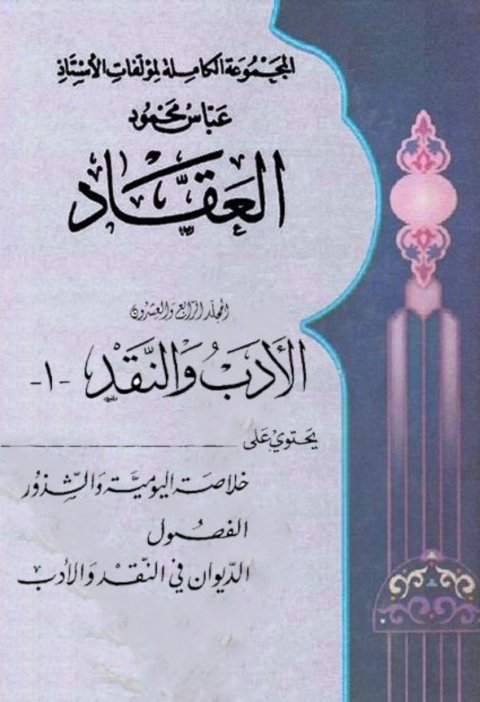 المجموعة الكاملة لمؤلفات الأستاذ
عباس محمود
العقاد
المجلد الرابع والعشرون
الأدب والنقد -١-
يحتوي على
خلاصة اليومية والشذور
الفصول
الديوان في النقد والأدب